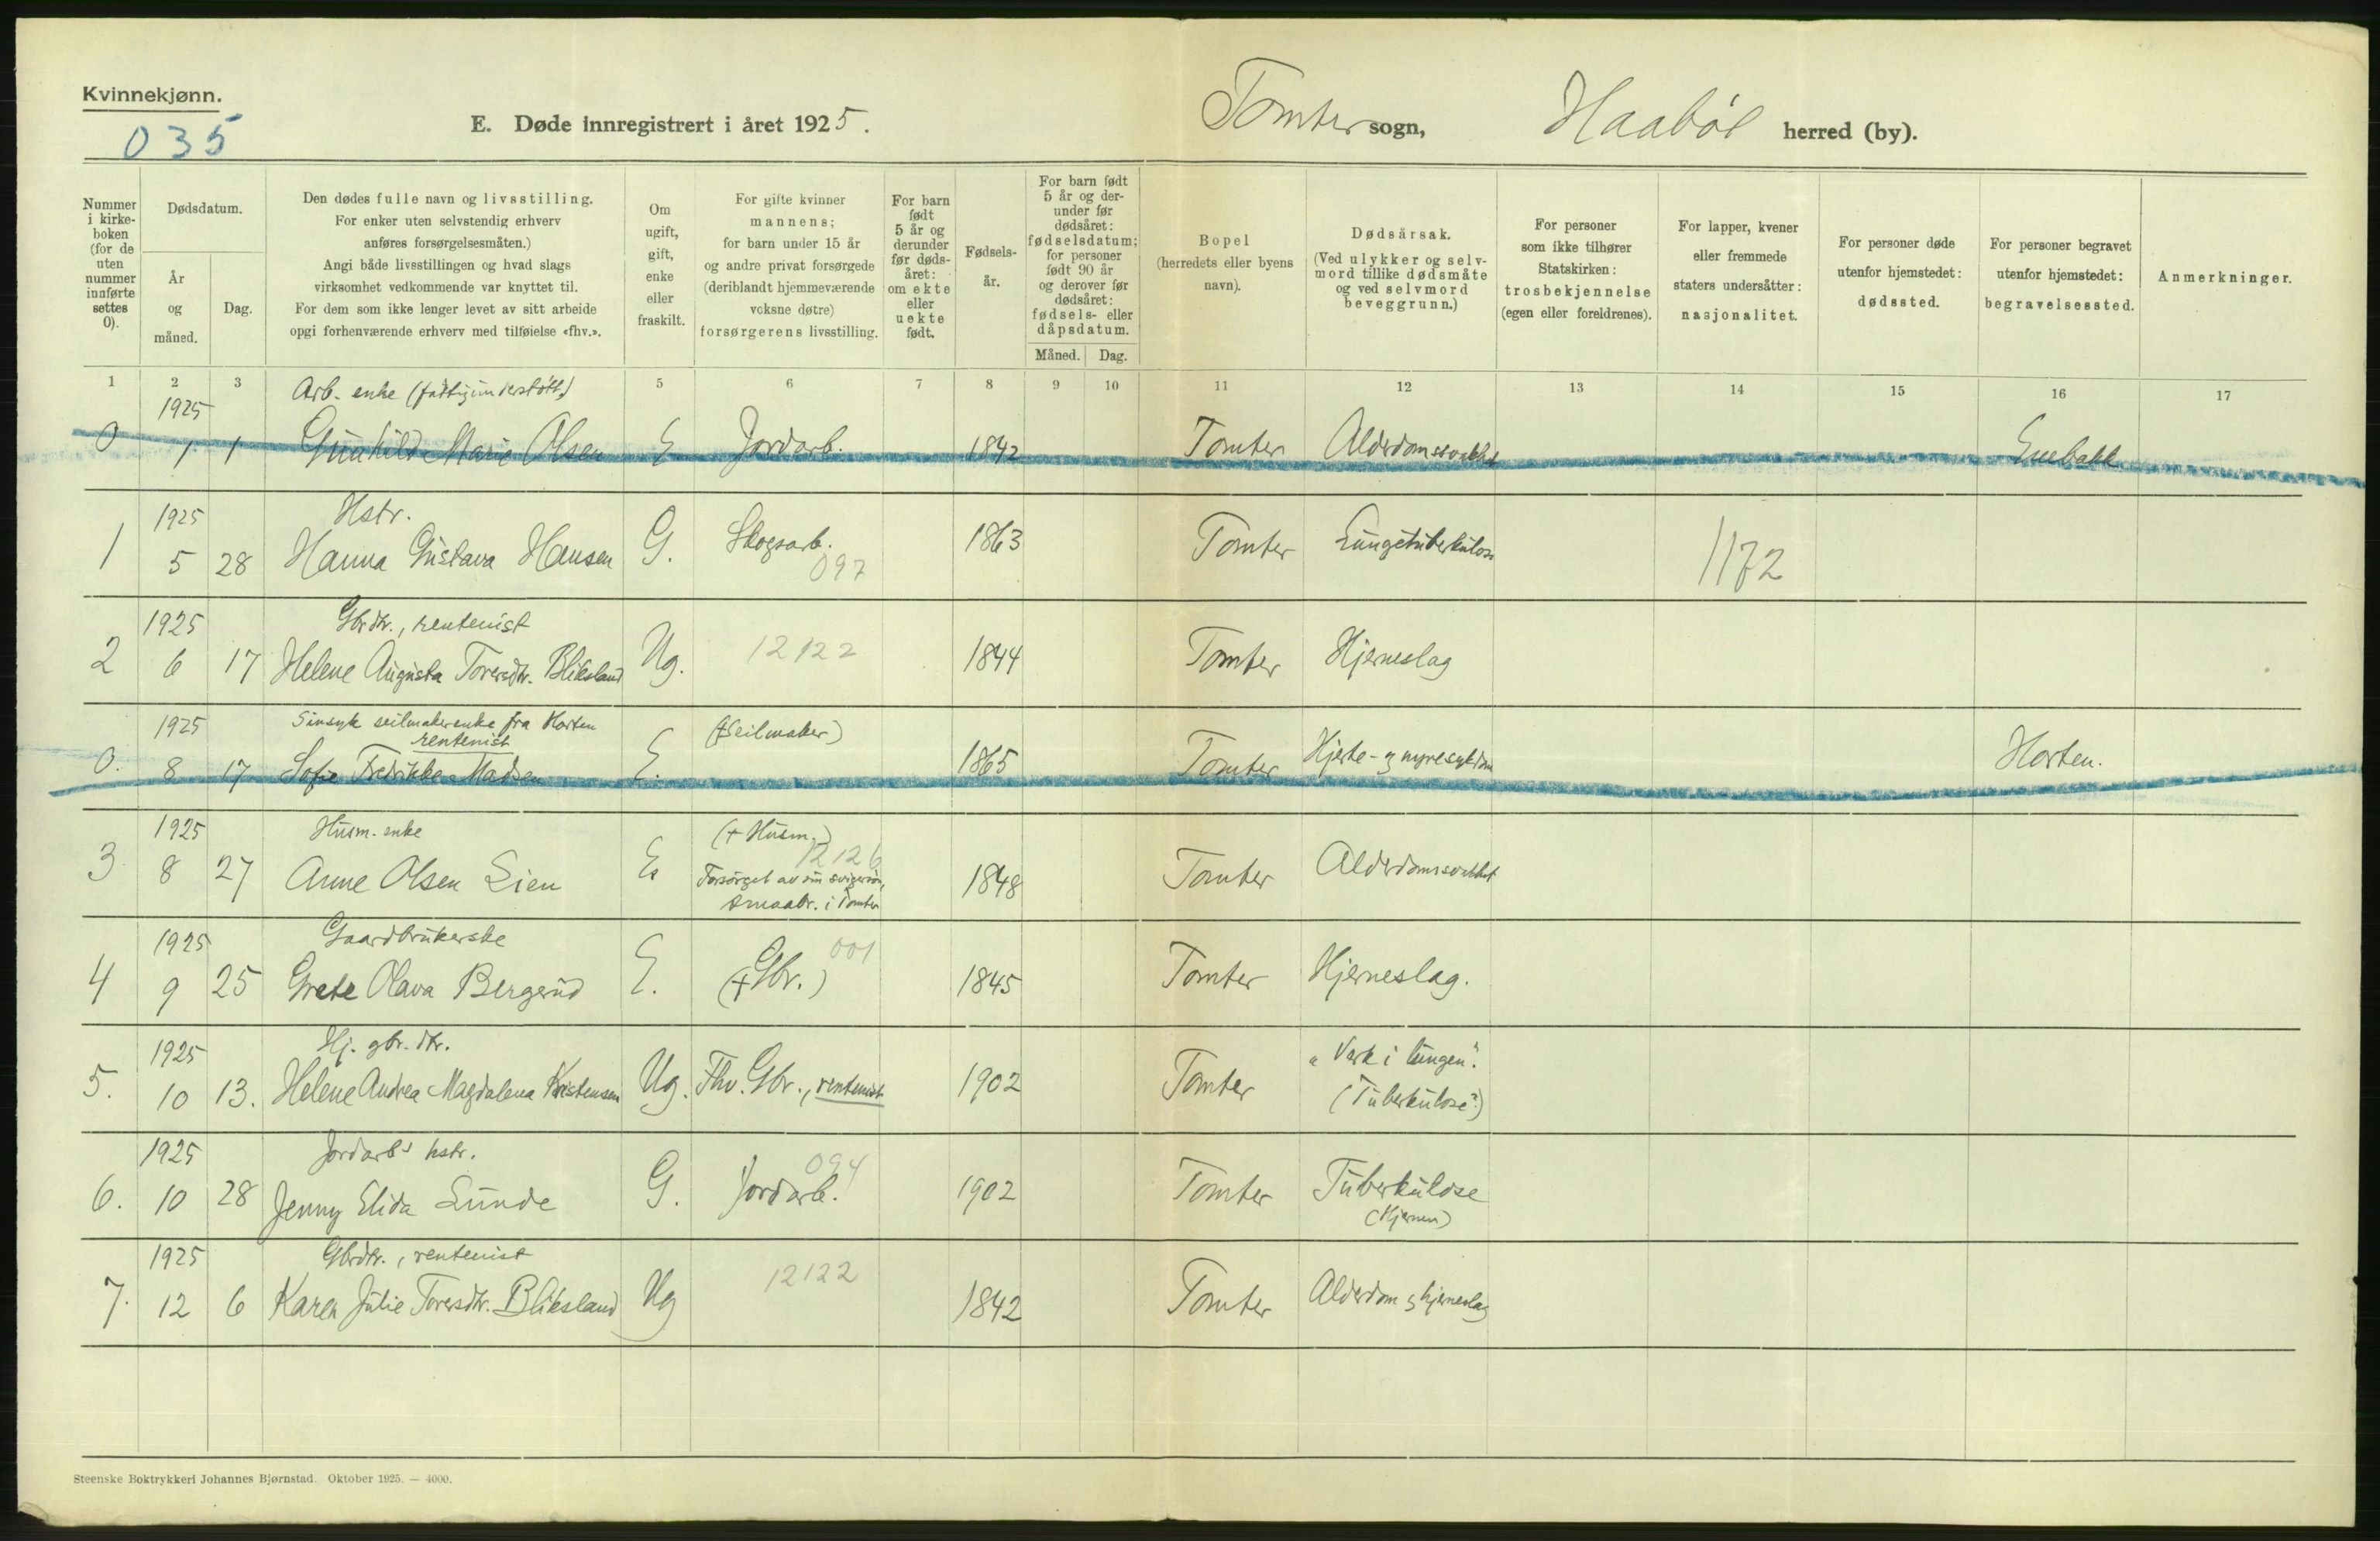 Kvinnekjønn.
035
E. Døde innregistrert i året 1925.
Tomter sogn, Haabøl herred (by).
Nummer i kirkeboken (for de uten nummer innførte settes 0).
Dødsdatum.
År og måned.
Dag.
Den dødes fulle navn og livsstilling.
For enker uten selvstendig erhverv
anføres forsørgelsesmåten.)
Angi både livsstillingen og hvad slags
virksomhet vedkommende var knyttet til.
For dem som ikke lenger levet av sitt arbeide
opgi forhenværende erhverv med tilføielse «fhv.».
Om ugift, gift, enke eller fraskilt.
For gifte kvinner
mannens;
for barn under 15 år
og andre privat forsørgede
(deriblandt hjemmeværende
voksne døtre)
forsørgerens livsstilling.
For barn født 5 år og derunder før dødsåret: om ekte eller uekte født.
Fødselsår.
For barn født 5 år og derunder før dødsåret: fødselsdatum; for personer født 90 år og derover før dødsåret: fødsels- eller dåpsdatum.
Måned. Dag.
Bopel
(herredets eller byens navn).
Dødsårsak.
(Ved ulykker og selvmord tillike dødsmåte og ved selvmord beveggrunn.)
For personer som ikke tilhører Statskirken: trosbekjennelse (egen eller foreldrenes).
For lapper, kvener eller fremmede staters undersåtter: nasjonalitet.
For personer døde utenfor hjemstedet: dødssted.
For personer begravet utenfor hjemstedet: begravelsessted.
Anmerkninger.
1 2 3 5 6 7 8 9 10 11 12 13 14 15 16 17
Arb. enke (fattigunderstött)
1925
0 1 1 Gunhild Marie Olsen E Jordarb. 1842 Tomter Alderdomssvakhet Enebakk
1925 Hstr.
1 5 28 Hanna Gustava Hansen G. Skogsarb. 1863 Tomter Lungetuberkulose 1172
097
1925 Gbrdtr., rentenist
2 6 17 Helene Augusta Toresdtr. Bliksland Ug. 12122 1844 Tomter Hjerneslag
1925 Sinsyk seilmakerenke fra Horten
rentenist
0. 8 17 Sofie Fredrikke Madsen E. (+Seilmaker) 1865 Tomter Hjerte- og nyresykdom Horten.
1925 Husm. enke (+ Husm.)
12126
3. 8 27 Anne Olsen Lien E Forsörget av sin svigersön, 1848 Tomter Alderdomssvakhet
Smaabr. i Tomter
1925 Gaardbrukerske 001
4 9 25 Grete Olava Bergerud E. (+Gbr.) 1845 Tomter Hjerneslag.
1925 Hj. gbr. dtr. "Verk i lungen".
5. 10 13. Helene Andrea Magdalena Kristensen Ug. Fhv. Gbr., rentenist 1902 Tomter (Tuberkulose?)
1925 Jordarb's hstr. 094
6. 10 28 Jenny Elida Lunde G. Jordarb. 1902 Tomter Tuberkulose
(Hjernen)
1925 Gbrdtr., rentenist
7. 12 6 Karen Julie Toresdtr. Bliksland Ug 12122 1842 Tomter Alderdom og hjerneslag
Steenske Boktrykkeri Johannes Bjørnstad. Oktober 1925. — 4000.